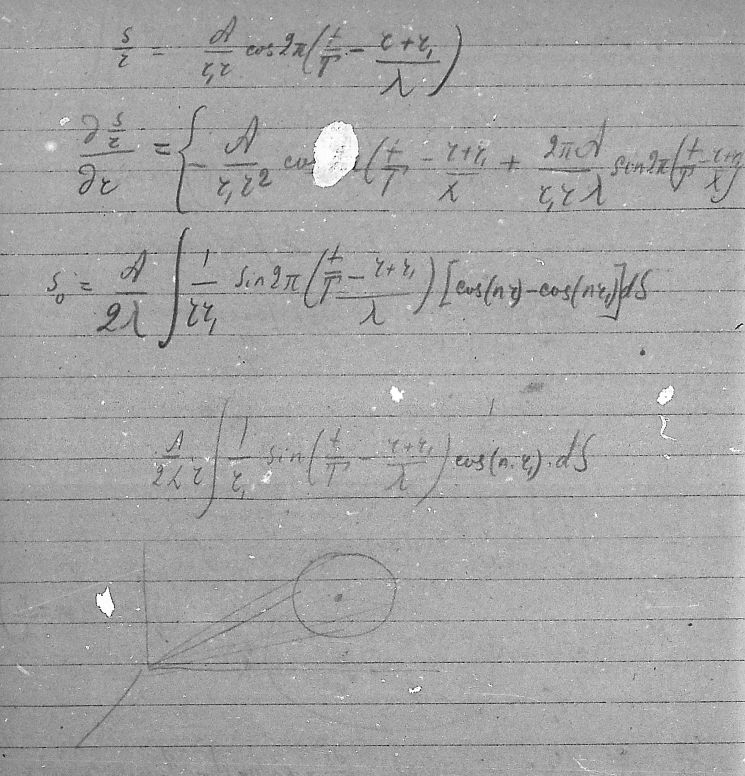 s/r = A/(r₁r) cos 2π(t/T − (r + r₁)/λ)
∂(s/r)/∂r = { − A/(r₁r²) co (t/T − (r + r₁)/λ + 2πA/(r₁rλ) sin 2π(t/T − (r + r₁)/λ)
s₀ = A/(2λ) ∫ 1/(rr₁) sin 2π(t/T − (r + r₁)/λ) [cos(nr) − cos(nr₁)] dS
A/(2λr) ∫ 1/r₁ sin(t/T − (r + r₁)/λ) cos(n·r₁)·dS